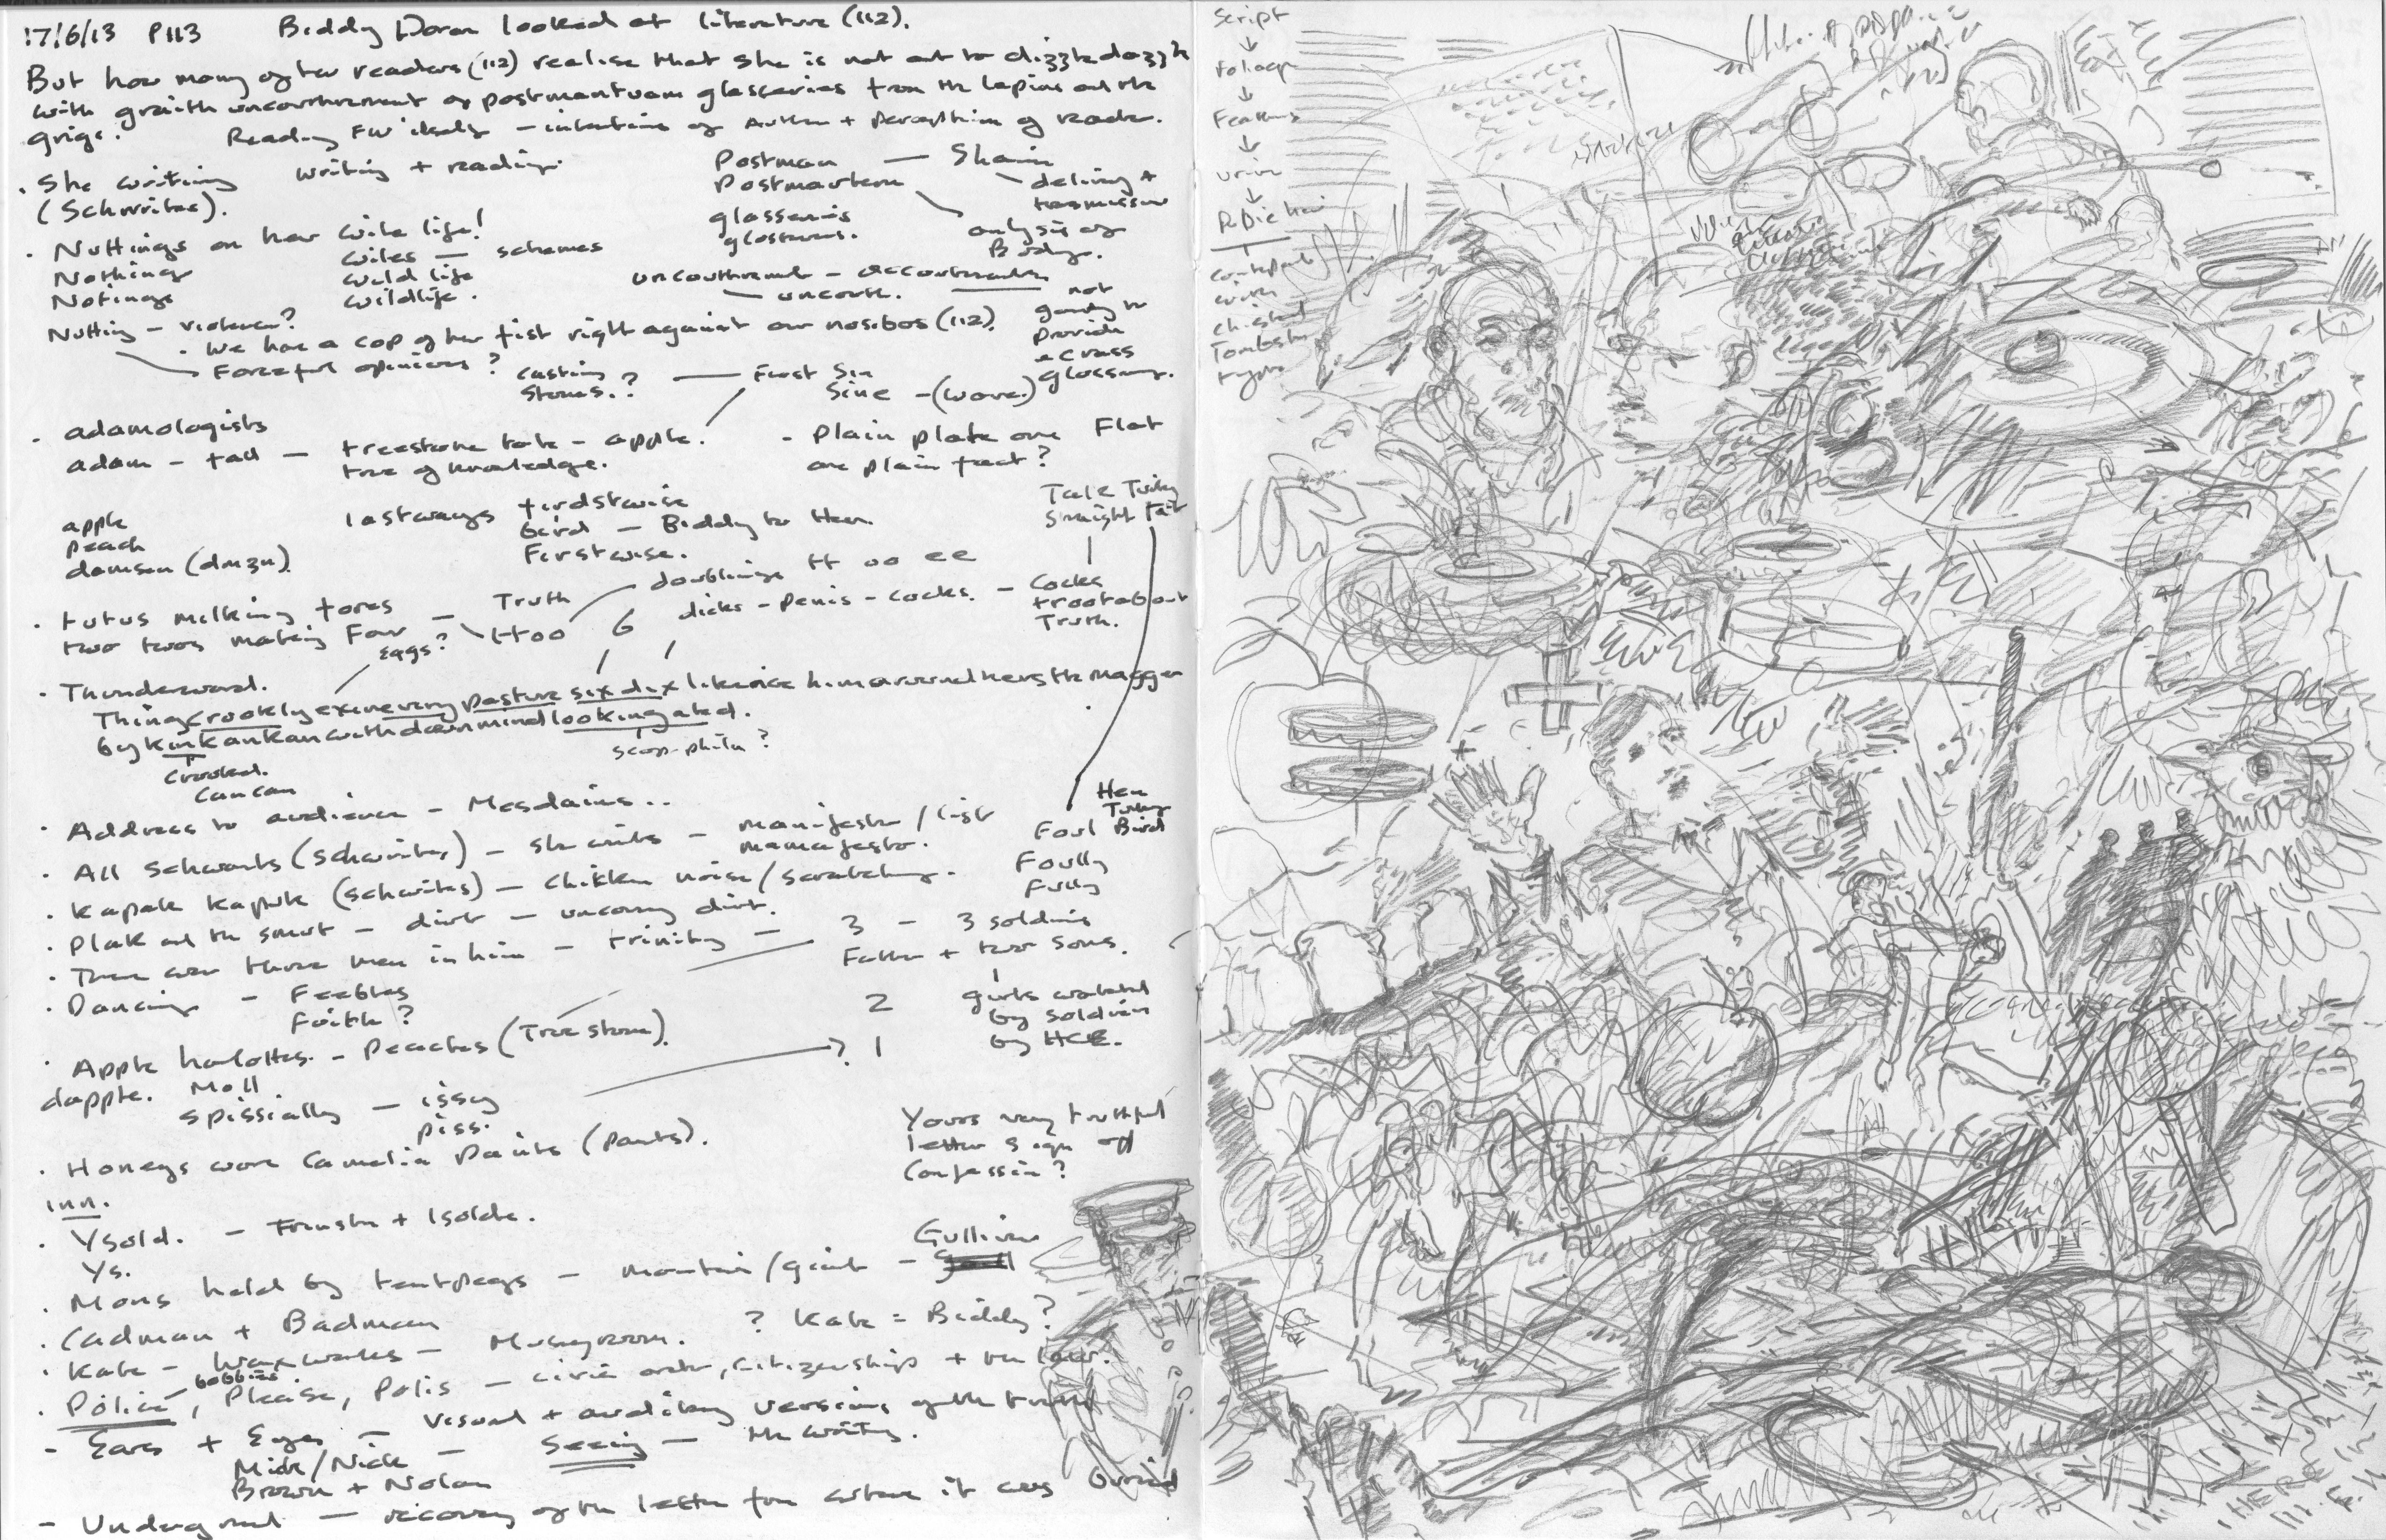 17/6/13 P113 Biddy Doran looked at literature (112).
But how many of her readers (112) realise that she is not out to dizzledazzle
with graith uncouthrement of postmantuam glasseries from the lapins and the
grigs. Reading FW itself - intentions of Author + perception of reader.
. She writing writing + reading.
(Schwrites).
Postman — Shaun
Postmortem - delivery +
transmission
glasseries
glossaries.
analysis of
Body.
. Nuttings on her wile life!
Nothings wiles — schemes
Notings wild life
wildlife.
uncouthrement - accoutrements
— uncouth.
not
going to
provide
a crass
glossary.
Nutting - violence?
. We have a cop of her fist right against our nosibos (112).
Forceful opinions?
casting
stones.? — First Sin
Sine - (wave)
. adamologists
adam - tall — treestone tale - apple.
tree of knowledge.
- Plain plate one Flat
one plain fact?
apple
peach
damson (dmzn)
lastways firdstwise
bird - Biddy the Hen
Firstwise.
Talk Turkey
Straight Talk
. tutus milking fores — Truth
two twos making Four
eggs?
ttoo 6
doublings tt oo ee
dicks - penis - cocks. - Cocks
trootabout
Truth.
. Thunderword.
Thingcrooklyexineverypasturesixdixlikencehimaroundhersthemagger
bykinkankanwithdownmindlookingated.
Crooked.
Cancan
scopophilia?
. Address to audience - Mesdaims..
. All schwants (schwrites) - she writes - manifesto / list
mamafesta.
Hen
Turkey
Bird
Fowl
Foully
Fully
. Kapak kapuk (schwrites) - chicken noise / scratching.
. Plak and the smut - dirt - uncovering dirt.
. There were three men in him - trinity — 3 - 3 soldiers
Father + two sons.
. Dancing - Feebles
Faith?
2 girls watched
by soldiers
by HCE.
. Apple harlottes. - Peaches (Tree stone) ? 1
dapple. Moll
spissially - issy
piss.
Yours very truthful
letter sign off
Confession?
. Honeys wore Camelia Paints (pants).
inn.
. Ysold. - Tristan + Isolde.
Ys.
. Mons held by tentpegs - mountain / giant - Gulliver
. Cadman + Badman
? Kate = Biddy?
. Kate - waxworks - Museyroom.
. Police, Please, Polis - civic order, citizenship + the law.
bobbies
- Ears + Eyes - visual + auditory versions of the truth
Mick/Nick — Seeing — the writing.
Brown + Nolan
- Underground — recovery of the letter from where it was buried
Script
↓
Foliage
↓
Feathers
↓
Urine
↓
Pubic hair
with
chiseled